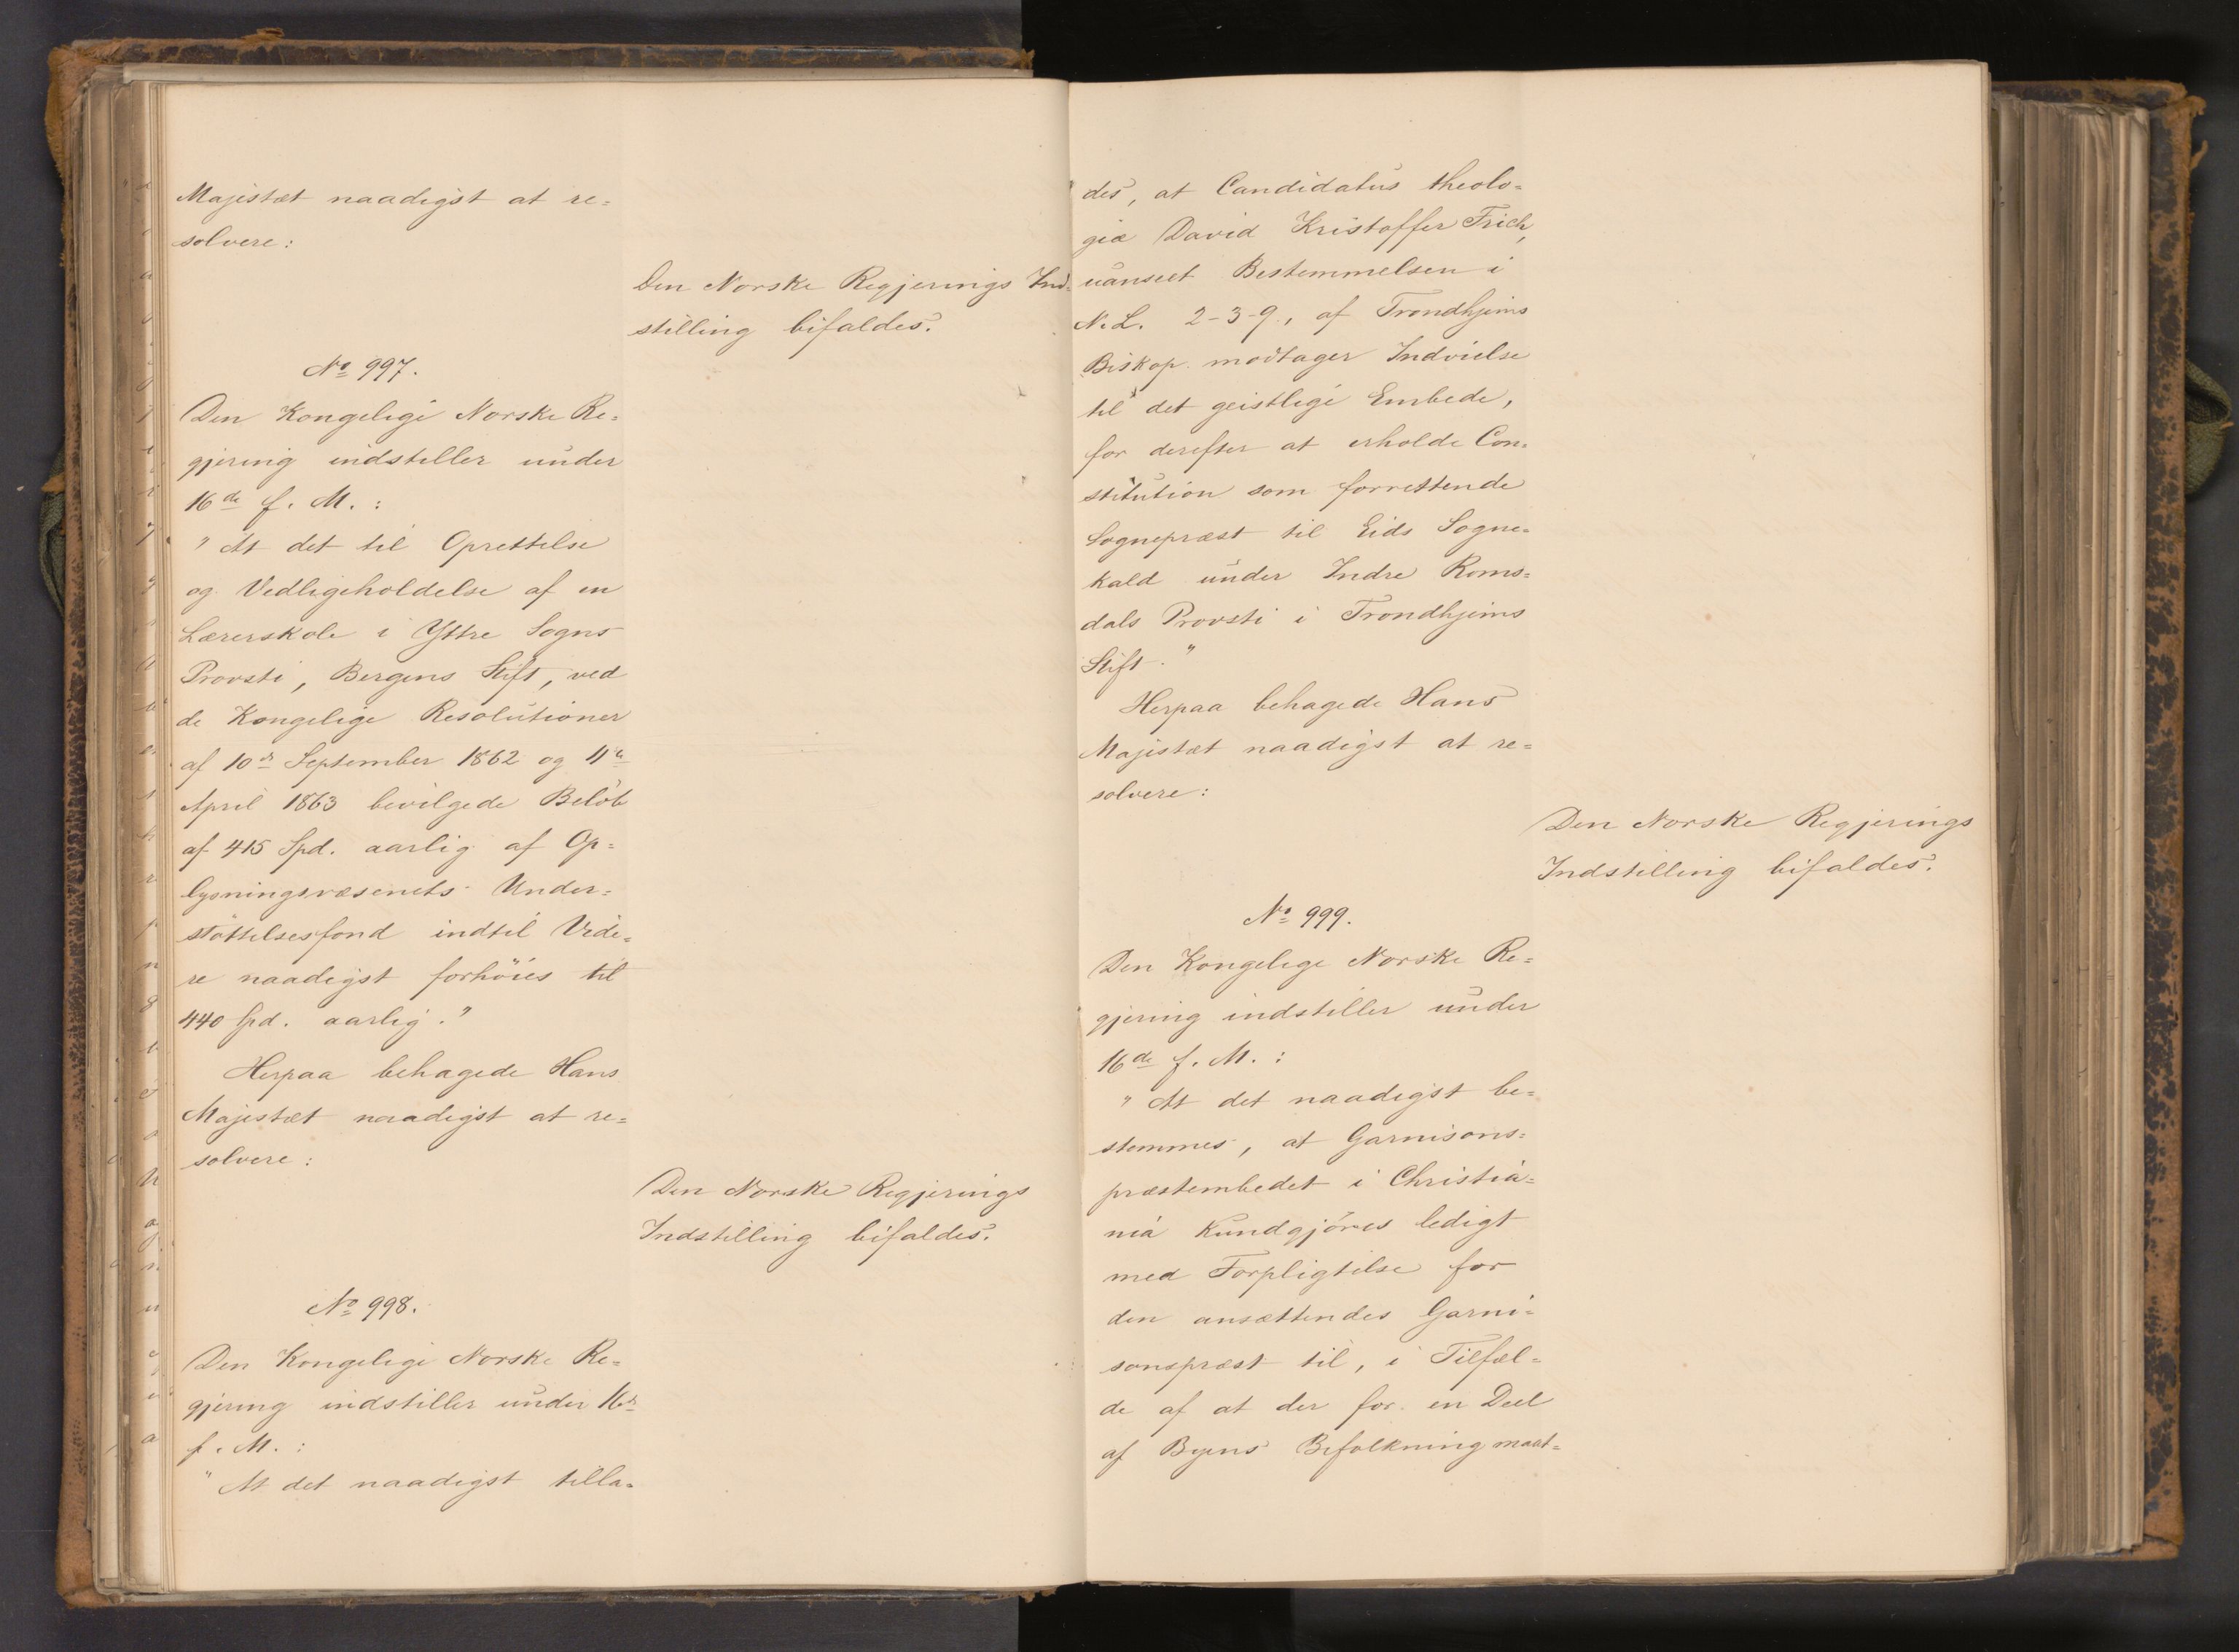 Majestæt naadigst at re=
solvere:
Den Norske Regjerings Ind=
stilling bifaldes.
No 997.
Den Kongelige Norske Re=
gjering indstiller under
16de f. M.:
"At det til Oprettelse
og Vedligeholdelse af en
Lærerskole i Yttre Sogns
Provsti, Bergens Stift, ved
de Kongelige Resolutioner
af 10de September 1862 og 11te
April 1863 bevilgede Beløb
af 415 Spd. aarlig af Op=
lysningsvæsenets Under=
støttelsesfond indtil Vide=
re naadigst forhöies til
440 Spd. aarlig."
Herpaa behagede Hans
Majestæt naadigst at re=
solvere:
Den Norske Regjerings
Indstilling bifaldes.
No 998.
Den Kongelige Norske Re=
gjering indstiller under 16de
f. M.:
"At det naadigst tilla=
des, at Candidatus theolo=
giæ David Kristoffer Frich,
uanseet Bestemmelsen i
N. L. 2-3-9, af Trondhjems
Biskop modtager Indvielse
til det geistlige Embede,
for derefter at erholde Con=
stitution som forrettende
Sognepræst til Eids Sogne=
kald under Indre Roms=
dals Provsti i Trondhjems
Stift."
Herpaa behagede Hans
Majestæt naadigst at re=
solvere:
Den Norske Regjerings
Indstilling bifaldes.
No 999.
Den Kongelige Norske Re=
gjering indstiller under
16de f. M.:
"At det naadigst be=
stemmes, at Garnisons=
præstembedet i Christia=
nia kundgjöres ledigt
med Forpligtelse for
den ansættendes Garni=
sonspræst til, i Tilfæl=
de af at der for en Deel
af Byens Befolkning maat=